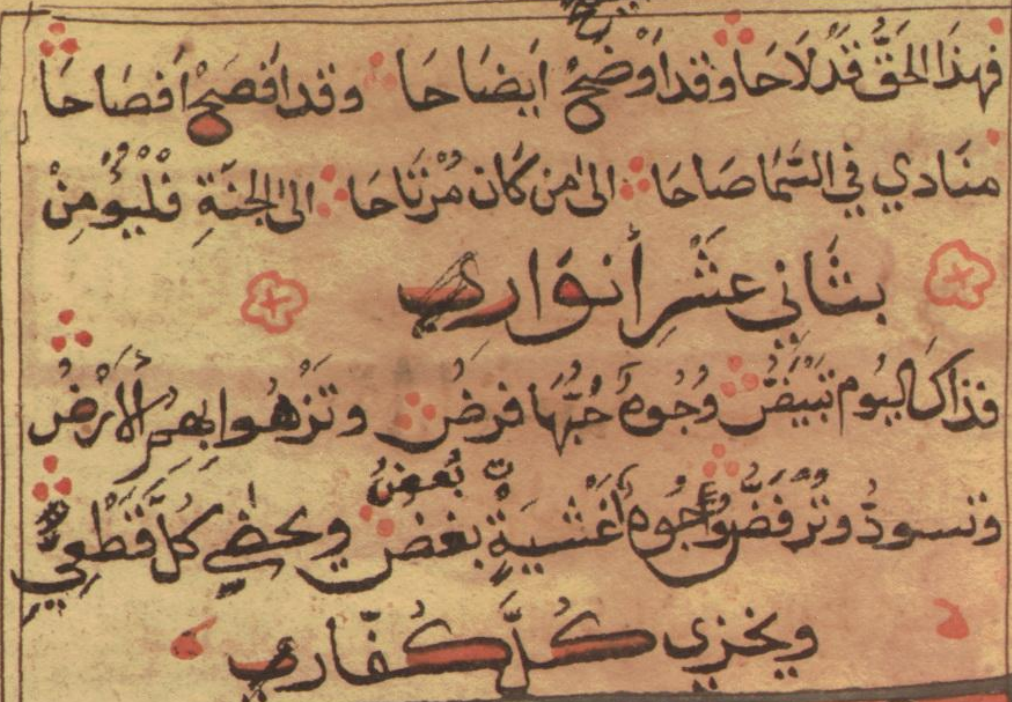 فهذا الحَقُّ قَدْ لَاحَا وقد اَوْضَحْ اَيضَاحَا وقد افصَحْ اَفصَاحَا
منَادي في السَّمَا صَاحَا الىٰ من كَان مُرْتَاحَا الى الجَنَةِ فَلْيُومِنْ
بثَاني عَشَرِ أنوَاري
فذاكَ اليُوم تَبيَضُّ وُجُوهٌ حُبُّهَا فرضُ وتَزْهُوا بهمُ الأرْضُ
وتسودُ وتُرفَضُّ وُجُوه أَغْشيَةٍ بُغضُ ويحضي كلَّ قَطعِي
ويخزي كُلَّ كُفّاري